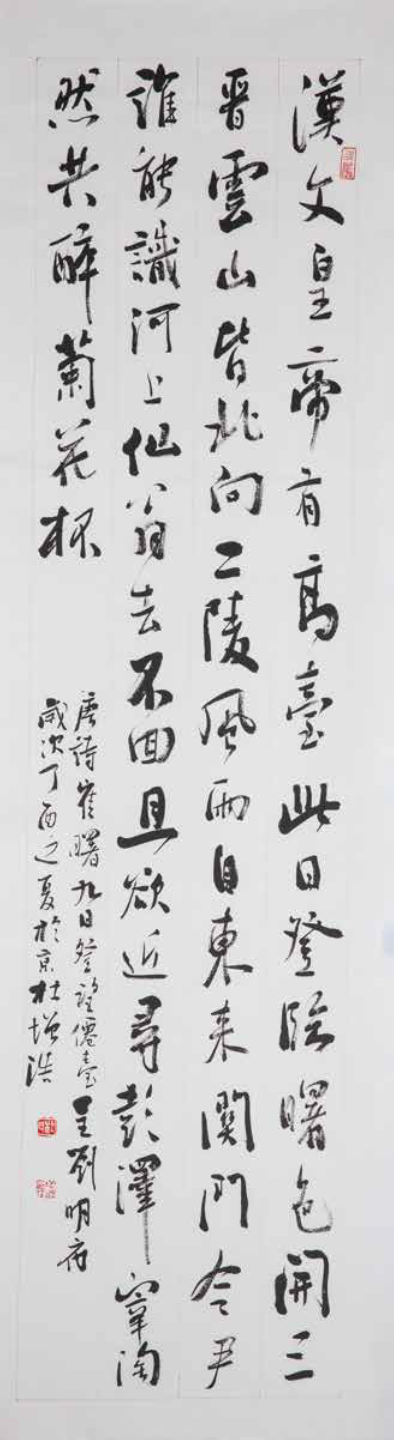 漢文皇帝有高臺此日登臨曙色開三
晉雲山皆北向二陵風雨自東来關門令尹
誰能識河上仙翁去不回且欲近尋彭澤宰陶
然共醉菊花杯
唐詩崔曙九日登望僊臺呈劉明府
歲次丁酉之夏於京杜增浩